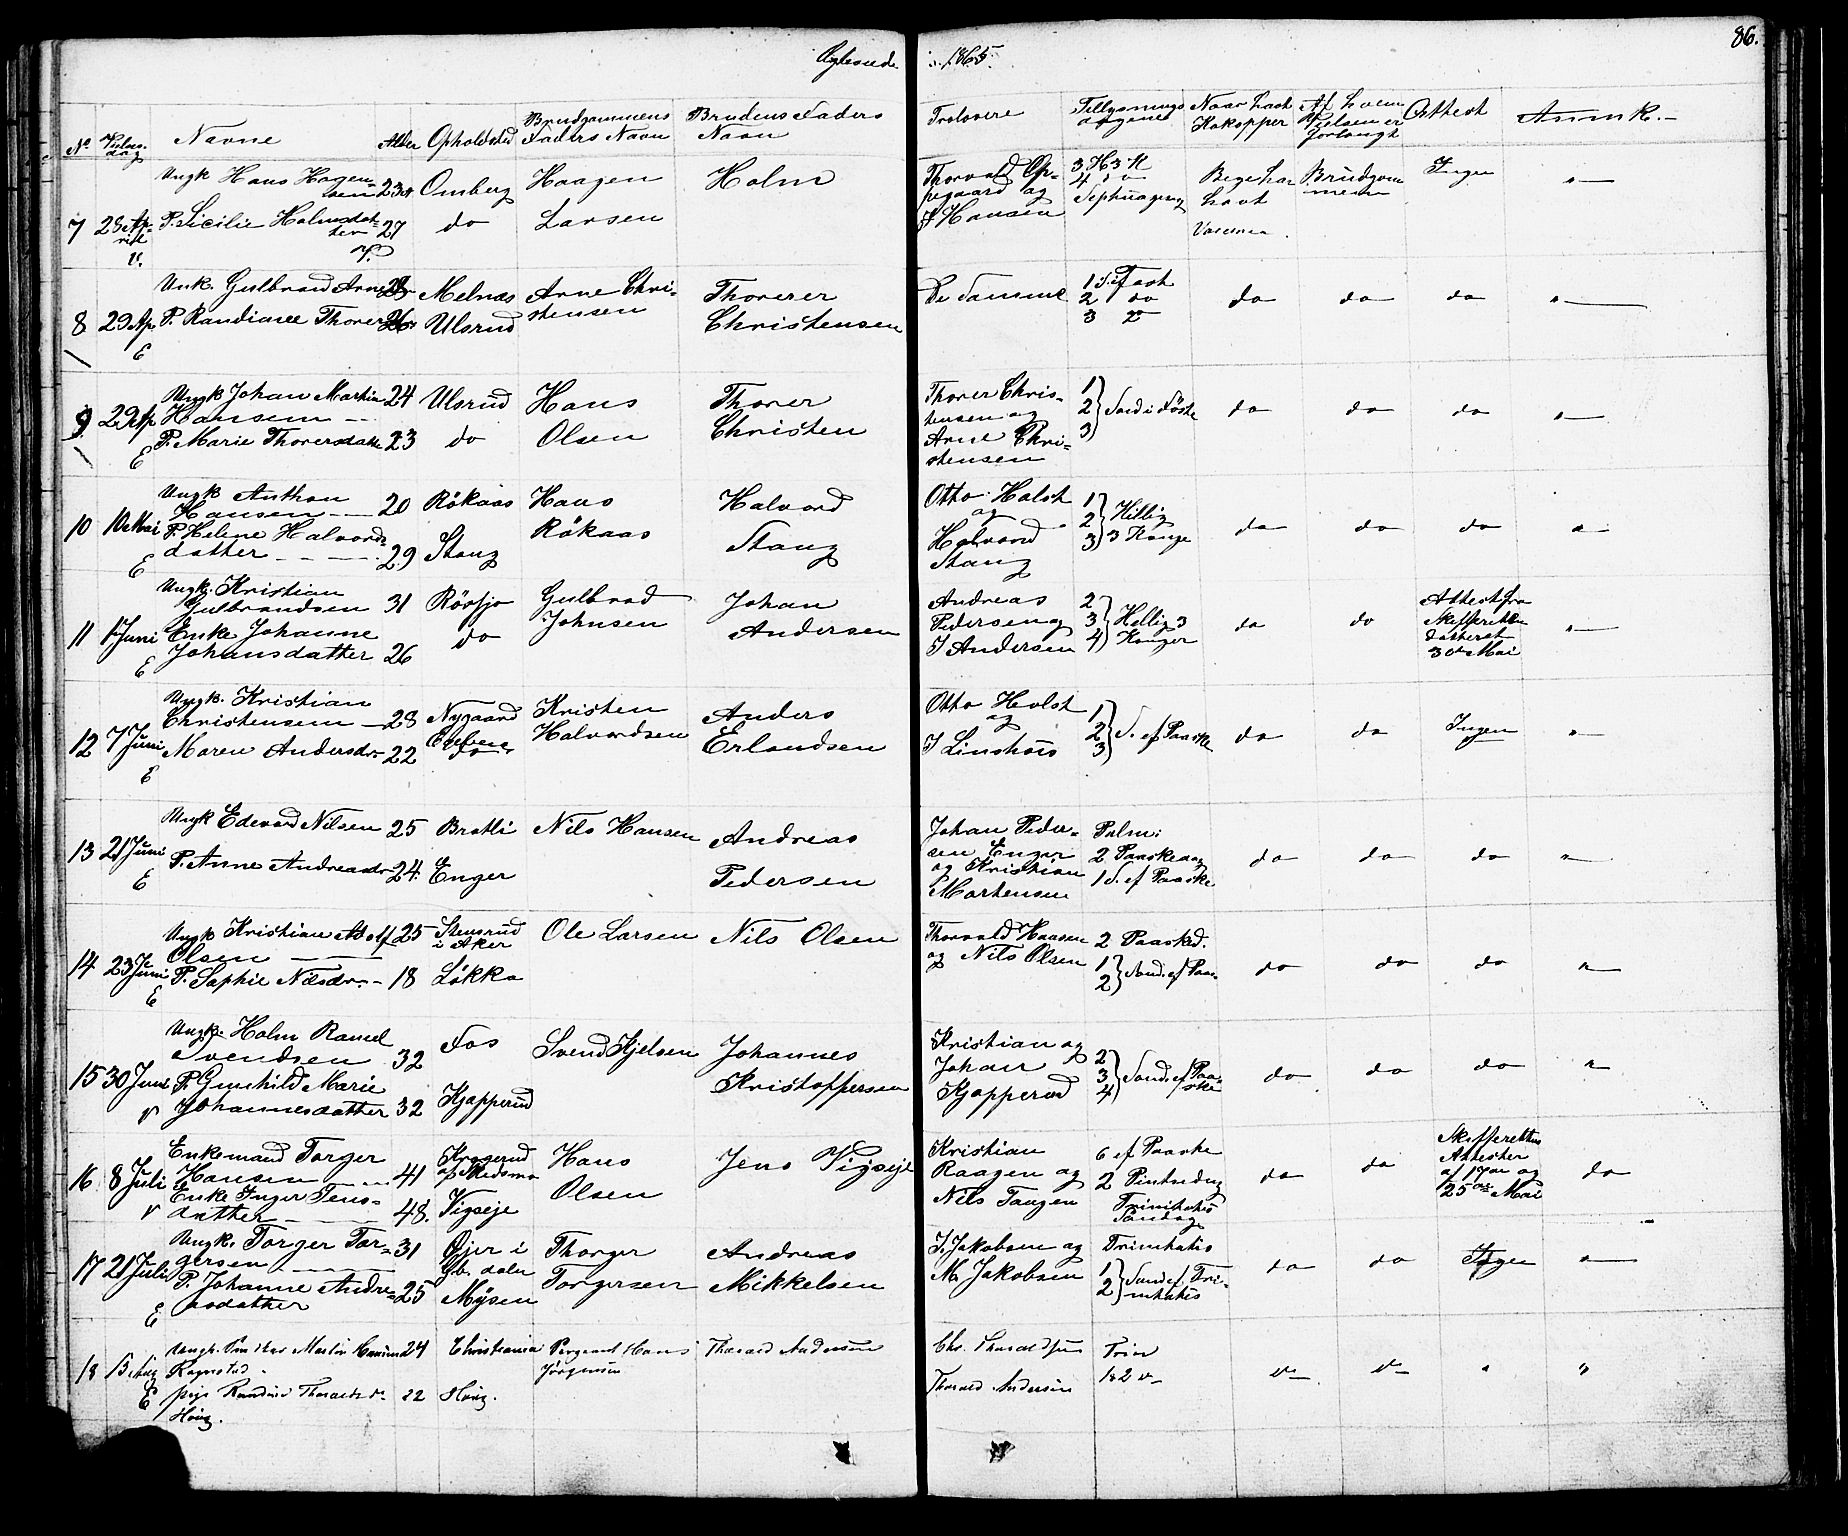 Ægteviede i 1865.
86.
No Vielses dag Navne Alder Opholdsted Brudgommens Faders Navn Brudens Faders Navn Trolovere Tillysnings dagene Naar havt Kokopper Af hvem Vielsen er forlangt Attest Anmk.
7 28 April V. Ungk Hans Hagensen 23 Omberg Haagen Larsen Holm
P. Sicilie Holmsdatter 27 do
Thorvald Oppegaard og Hansen 3 H 3 K 4 Septuagesig Bege har havt Vaccinen. Brudgommen Ingen "
8 29 Ap. E Unk. Gulbrand Arnes 28 Melnæs Arne Christensen Thorerer Christensen
P. Randiane Thorer 26 Ulsrud
De Samme 1 S. ef Fast 2 do 3 do do do "
9 29 Ap E Ungk Johan Martin Hansen 24 Ulsrud Hans Olsen Thorer Christen
P. Marie Thorersdatter 23 do
Thorer Christensen og Arne Christensen 1 2 3 Sønd i Faste do do do "
10 10 Mai E Ungk Anthon Hansen 20 Rökaas Hans Rökaas Halvord Stang
P. Helene Halvordsdatter 29 Stang
Otto Holst og Halvord Stang 1 2 3 Hillig 3 Konge do do do "
11 1 Juni E Ungk. Kristian Gulbrandsen 31 Rörsjo Gulbrad Johnsen Johan Andersen
Enke Johanne Johansdatter 26 do
Andreas Pedersen og J Andersen 2 3 4 Hellig 3 Konger do do Attest fra Skifteretten datteret 30te Mai "
12 7 Juni E Ungk. Kristian Christensen 28 Nygaard Kristen Halvordsen Anders Erlandsen
Maren Andersdr 22 do
Otto Holst og J Linshous 1 2 3 S. ef Paaske do do Ingen "
13 21 Juni E Ungk Edevard Nilsen 25 Bratli Nils Hansen Andreas Pedersen
P. Anne Andreasdr 24 Enger
Johan Pedersen Enger og Kristian Mortensen Palm: 2 Paaskedag 1 S. ef Paaske do do do "
14 23 Juni E Ungk Kristian Adolf Olsen 25 Stensrud i Aker Ole Larsen Nils Olsen
P. Sophie Nilsdr. 18 Lökka
Thorvald Haasen og Nils Olsen 2 Paasked. 1 2 Sond. ef Paa. do do do "
15 30 Juni V Ungk. Holm Ramel Svendsen 32 Fos Svend Kjelsen Johannes Kristoffersen
P. Gunhild Marie Johannesdatter 32 Kjapperud
Kristian og Johan Kjapperud 2 3 4 Sond. ef Paaske do do do "
16 8 Juli V Enkemand Torger Hansen 41 Krogerud Hans Olsen Jens Vigseje
Enke Inger Jensdatter 48. Vigseje
Kristian Raagen og Nils Taagen 6 ef Paaske 2 Pintsedag Trinitatis Söndag do do Skifterettens Attester af 17de og 25de Mai do
17 21 Juli E Ungk. Torger Torgersen 31 Öjer i Gb. dalen Thorger Torgersen Andreas Mikkelsen
P. Johanne Andreasdatter 25 Mysen
J. Jakobsen og M. Jakobsen Trinitatis 1 2 Sond ef. Trinitatis do do Ingen "
18 15 Aug E Ungk. Martin 24 Christiania Sergeant Hans Jörgensen Thorald Andersen
pige Randine Thoralds dr. Haug. 22 Haug.
Chr. Thoraldsen Thorald Andersen Trin 1 & 2 do do do " "